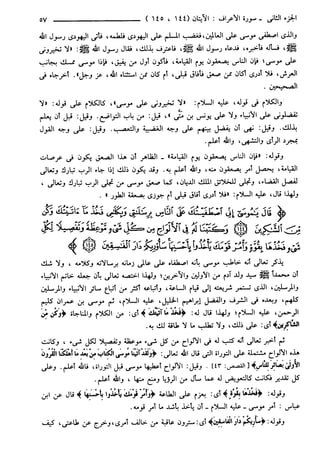 الجزء الثاني - سورة الأعراف : الآيتان (١٤٤ ، ١٤٥) ٥٧
والذي اصطفى موسى على العالمين، فغضب المسلم على اليهودي فلطمه، فأتى اليهودي رسول الله
ﷺ، فسأله فأخبره، فدعاه رسول الله ﷺ، فاعترف بذلك، فقال رسول الله ﷺ: «لا تخيروني
على موسى؛ فإن الناس يصعقون يوم القيامة، فأكون أول من يفيق، فإذا موسى ممسك بجانب
العرش، فلا أدري أكان ممن صعق فأفاق قبلي، أم كان ممن استثناه الله، عز وجل». أخرجاه في
الصحيحين .
والكلام في قوله، عليه السلام: «لا تخيروني على موسى»، كالكلام على قوله: «لا
تفضلوني على الأنبياء ولا على يونس بن متَّى»، قيل: من باب التواضع. وقيل: قبل أن يعلم
بذلك. وقيل: نهى أن يفضل بينهم على وجه الغضبية والتعصب. وقيل: على وجه القول
بمجرد الرأي والتشهي، والله أعلم.
وقوله: «فإن الناس يصعقون يوم القيامة» - الظاهر أن هذا الصعق يكون في عرصات
القيامة، يحصل أمر يصعقون منه، والله أعلم به. وقد يكون ذلك إذا جاء الرب تبارك وتعالى
لفصل القضاء، وتجلى للخلائق الملك الديان، كما صعق موسى من تجلي الرب تبارك وتعالى ،
ولهذا قال، عليه السلام: «فلا أدري أفاق قبلي أم جوزي بصعقة الطور» .
يذكر تعالى أنه خاطب موسى بأنه اصطفاه على عالمي زمانه برسالاته وكلامه ، ولا شك
أن محمداً ﷺ سيد ولد آدم من الأولين والآخرين؛ ولهذا اختصه تعالى بأن جعله خاتم الأنبياء
والمرسلين، الذي تستمر شريعته إلى قيام الساعة، وأتباعه أكثر من أتباع سائر الأنبياء والمرسلين
كلهم، وبعده في الشرف والفضل إبراهيم الخليل، عليه السلام، ثم موسى بن عمران كليم
الرحمن، عليه السلام؛ ولهذا قال له: ﴿فَخُذْ مَا آتَيْتُكَ﴾ أي: من الكلام والمناجاة ﴿وَكُن مِّنَ
الشَّاكِرِينَ﴾ أي: على ذلك، ولا تطلب ما لا طاقة لك به.
ثم أخبر تعالى أنه كتب له في الألواح من كل شيء موعظة وتفصيلا لكل شيء ، وكانت
هذه الألواح مشتملة على التوراة التي قال الله تعالى: ﴿وَلَقَدْ آتَيْنَا مُوسَى الْكِتَابَ مِن بَعْدِ مَا أَهْلَكْنَا الْقُرُونَ
الْأُولَىٰ بَصَائِرَ لِلنَّاسِ﴾ [القصص: ٤٣] . وقيل: الألواح أعطيها موسى قبل التوراة، فالله أعلم. وعلى
كل تقدير فكانت كالتعويض له عما سأل من الرؤية ومنع منها ، والله أعلم.
وقوله: ﴿فَخُذْهَا بِقُوَّةٍ﴾ أي: بعزم على الطاعة ﴿وَأْمُرْ قَوْمَكَ يَأْخُذُوا بِأَحْسَنِهَا﴾ قال عن ابن
عباس : أمر موسى - عليه السلام - أن يأخذ بأشد ما أمر قومه.
وقوله: ﴿سَأُرِيكُمْ دَارَ الْفَاسِقِينَ﴾ أي: سترون عاقبة من خالف أمري، وخرج عن طاعتي، كيف